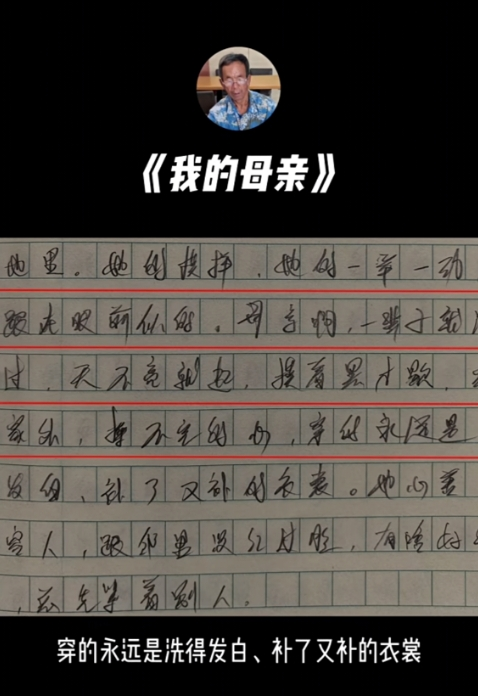 《我的母亲》
地里。她的模样，她的一举一动
跟在眼前似的。母亲啊，一辈子就没
过，天不亮就起，摸着黑才歇，
家外，操不完的心，穿的永远是
发白、补了又补的衣裳。她心善
容人，跟邻里没红过脸，有啥好
，总先学着别人。
穿的永远是洗得发白、补了又补的衣裳